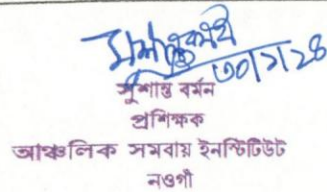 ৩০/১/২৪
সুশান্ত বর্মন
প্রশিক্ষক
আঞ্চলিক সমবায় ইনস্টিটিউট
নওগাঁ